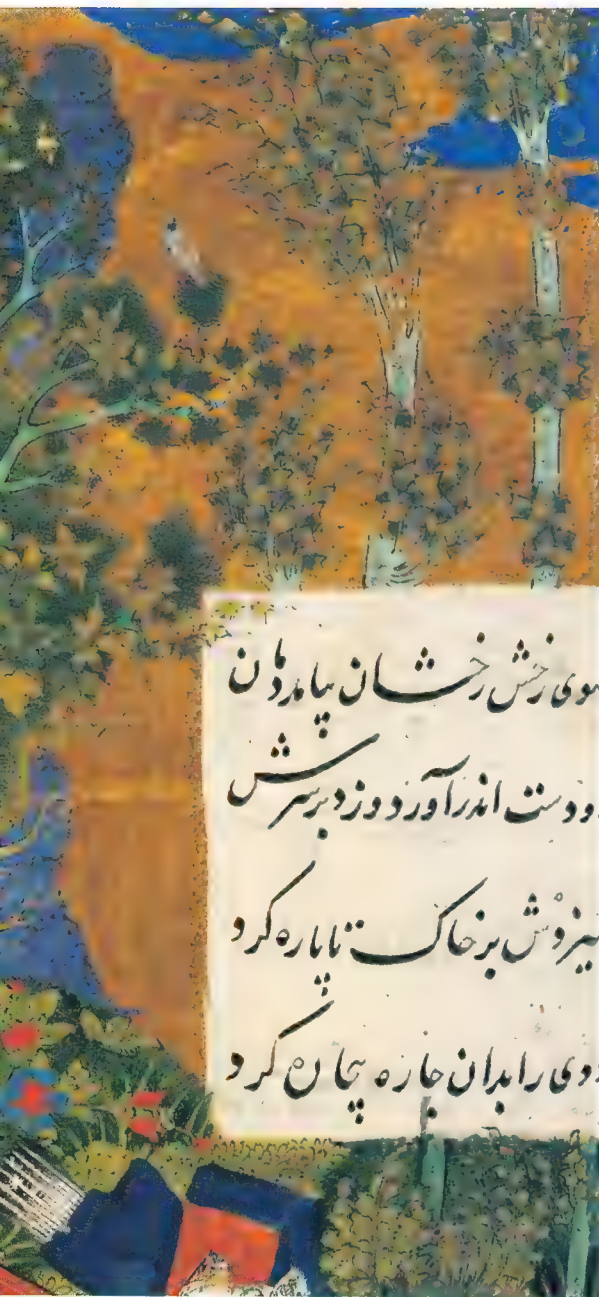 سوی رخش رخشان بیامد دمان
دو دست اندر آورد و زد بر سرش
همیزدش بر خاک تا پاره کرد
ددی را بدان چاره بیچاره کرد